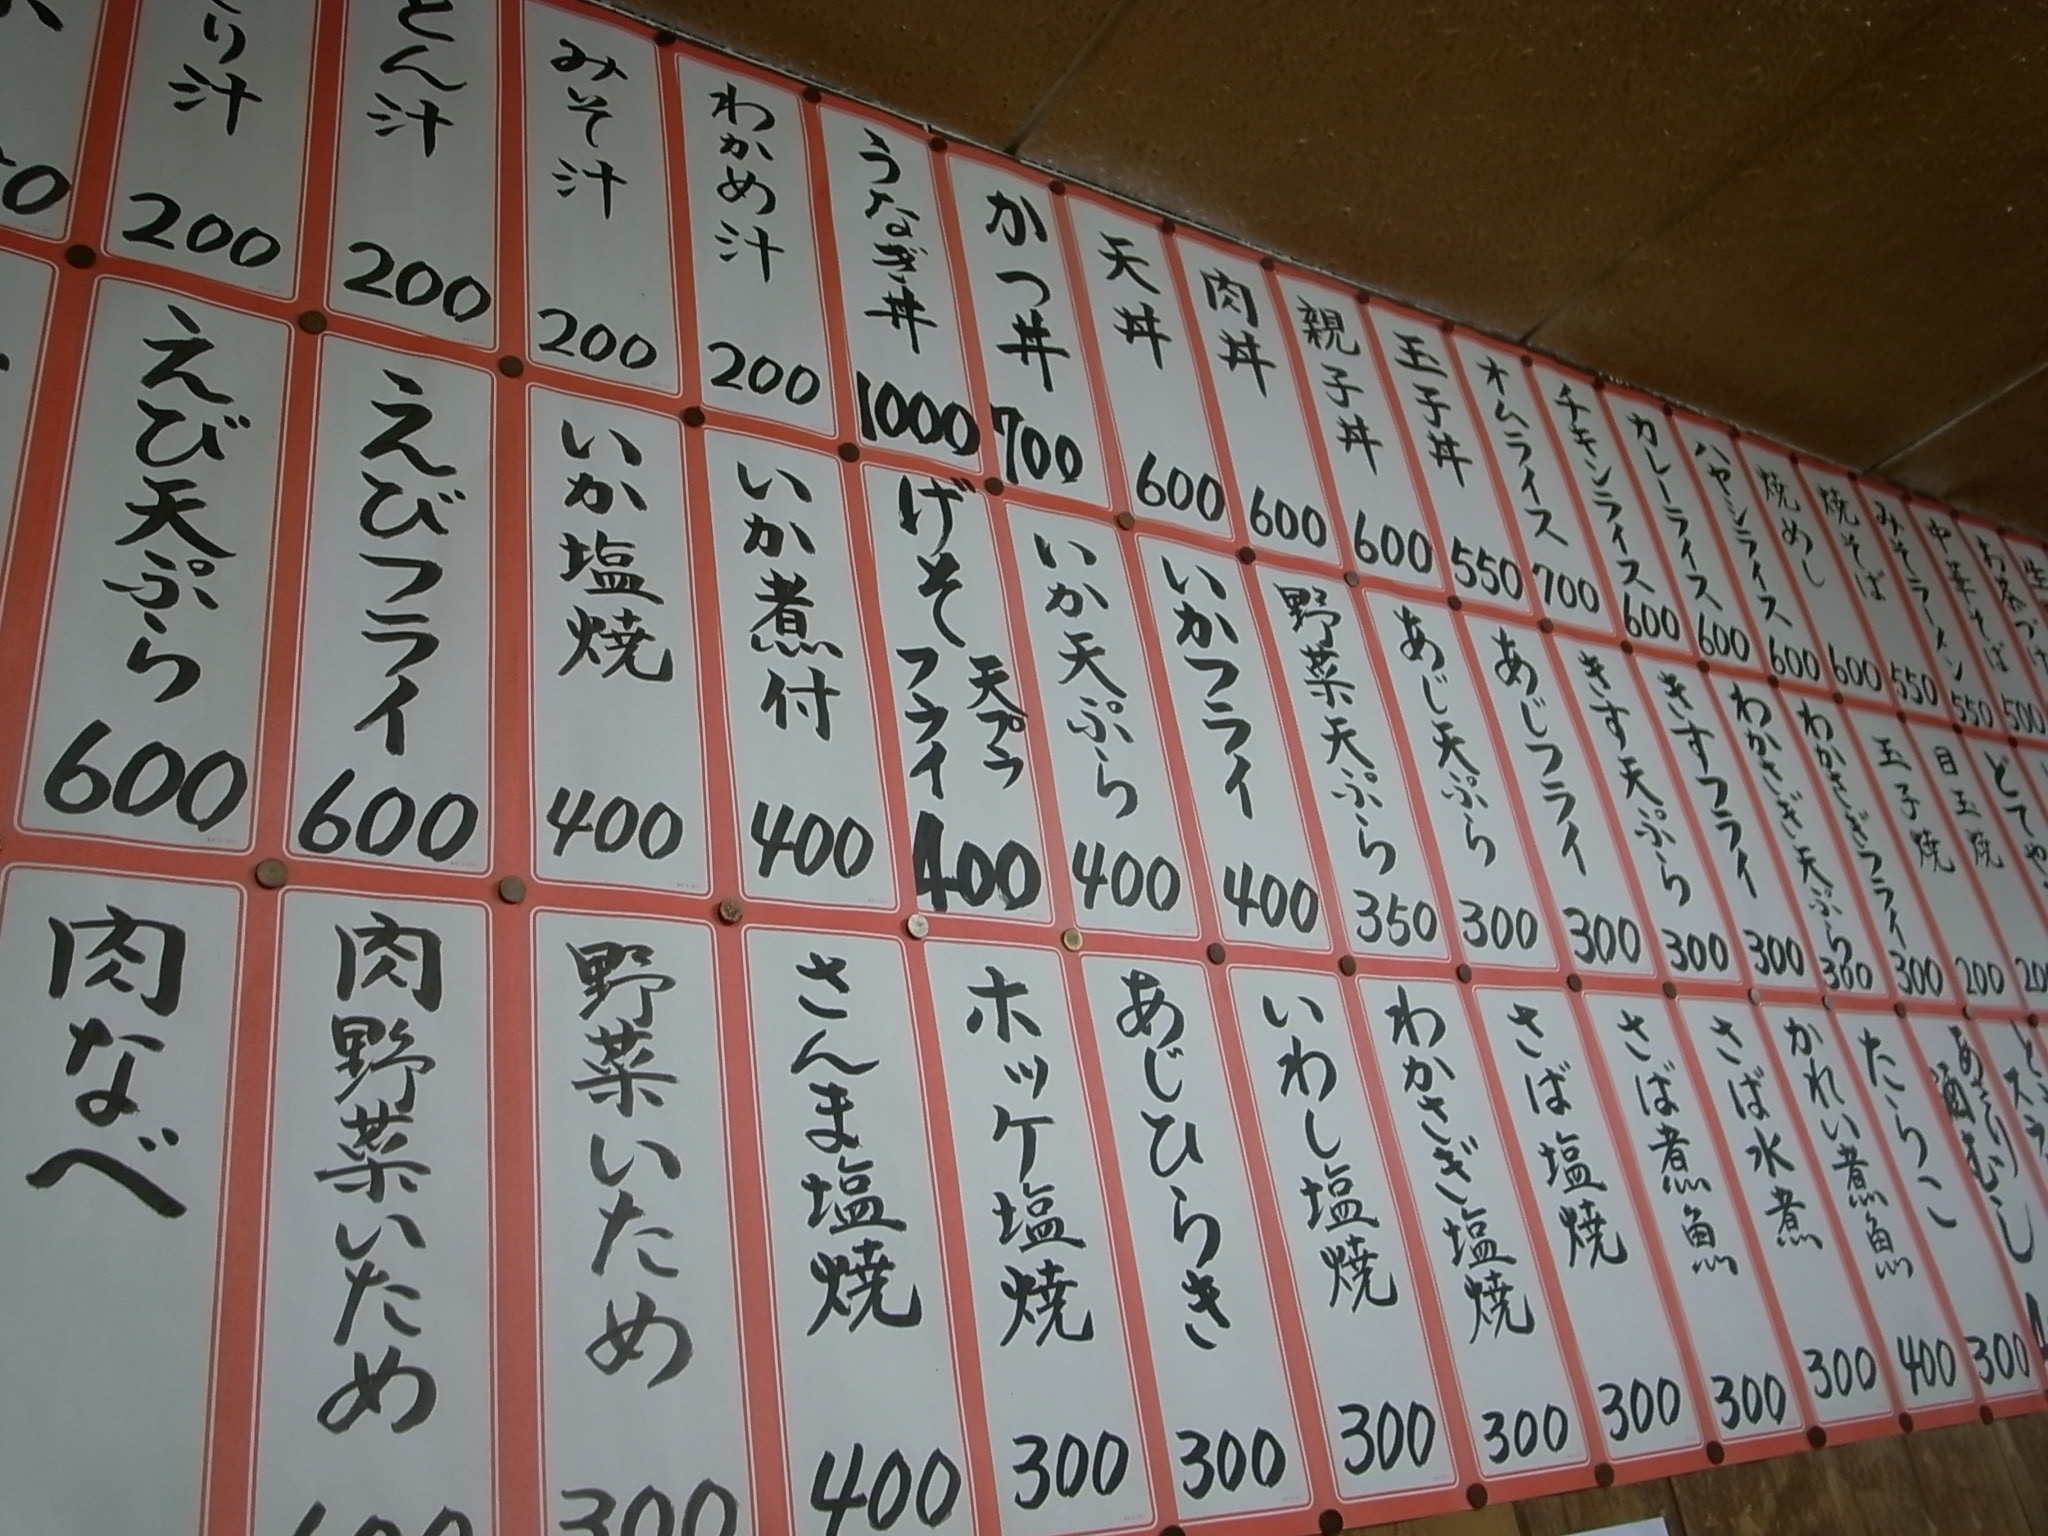 り汁 200
とん汁 200
みそ汁 200
わかめ汁 200
うなぎ丼 1000
かつ丼 700
天丼 600
肉丼 600
親子丼 600
玉子丼 550
オムライス 700
チキンライス 600
カレーライス 600
ハヤシライス 600
焼めし 600
焼そば 550
みそラーメン 550
中華そば 500
お茶づけ
えび天ぷら 600
えびフライ 600
いか塩焼 400
いか煮付 400
げそ 天プラ フライ 400
いか天ぷら 400
いかフライ 400
野菜天ぷら 350
あじ天ぷら 300
あじフライ 300
きす天ぷら 300
きすフライ 300
わかさぎ天ぷら 300
わかさぎフライ 300
玉子焼 200
目玉焼 200
どてや
肉なべ
肉野菜いため 600
野菜いため 300
さんま塩焼 400
ホッケ塩焼 300
あじひらき 300
いわし塩焼 300
わかさぎ塩焼 300
さば塩焼 300
さば煮魚 300
さば水煮 300
かれい煮魚 400
たらこ 300
あさり酒むし